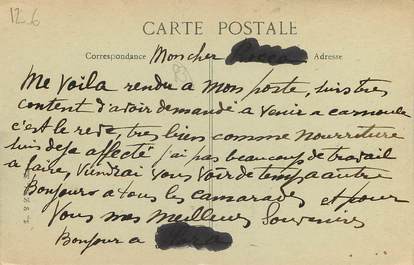 12.6
CARTE POSTALE
Correspondance Mon cher Adresse
Me voila rendu a mon poste, suis tres
content d'avoir demandé a venir a carnoule
c'est le reve, tres bien comme nourriture
suis deja affecté j'ai pas beaucoup de travail
a faire, viendrai vous voir de temp a autre
Bonjours a tous les camarades et pour
vous mes meilleurs souvenirs
Bonjour a